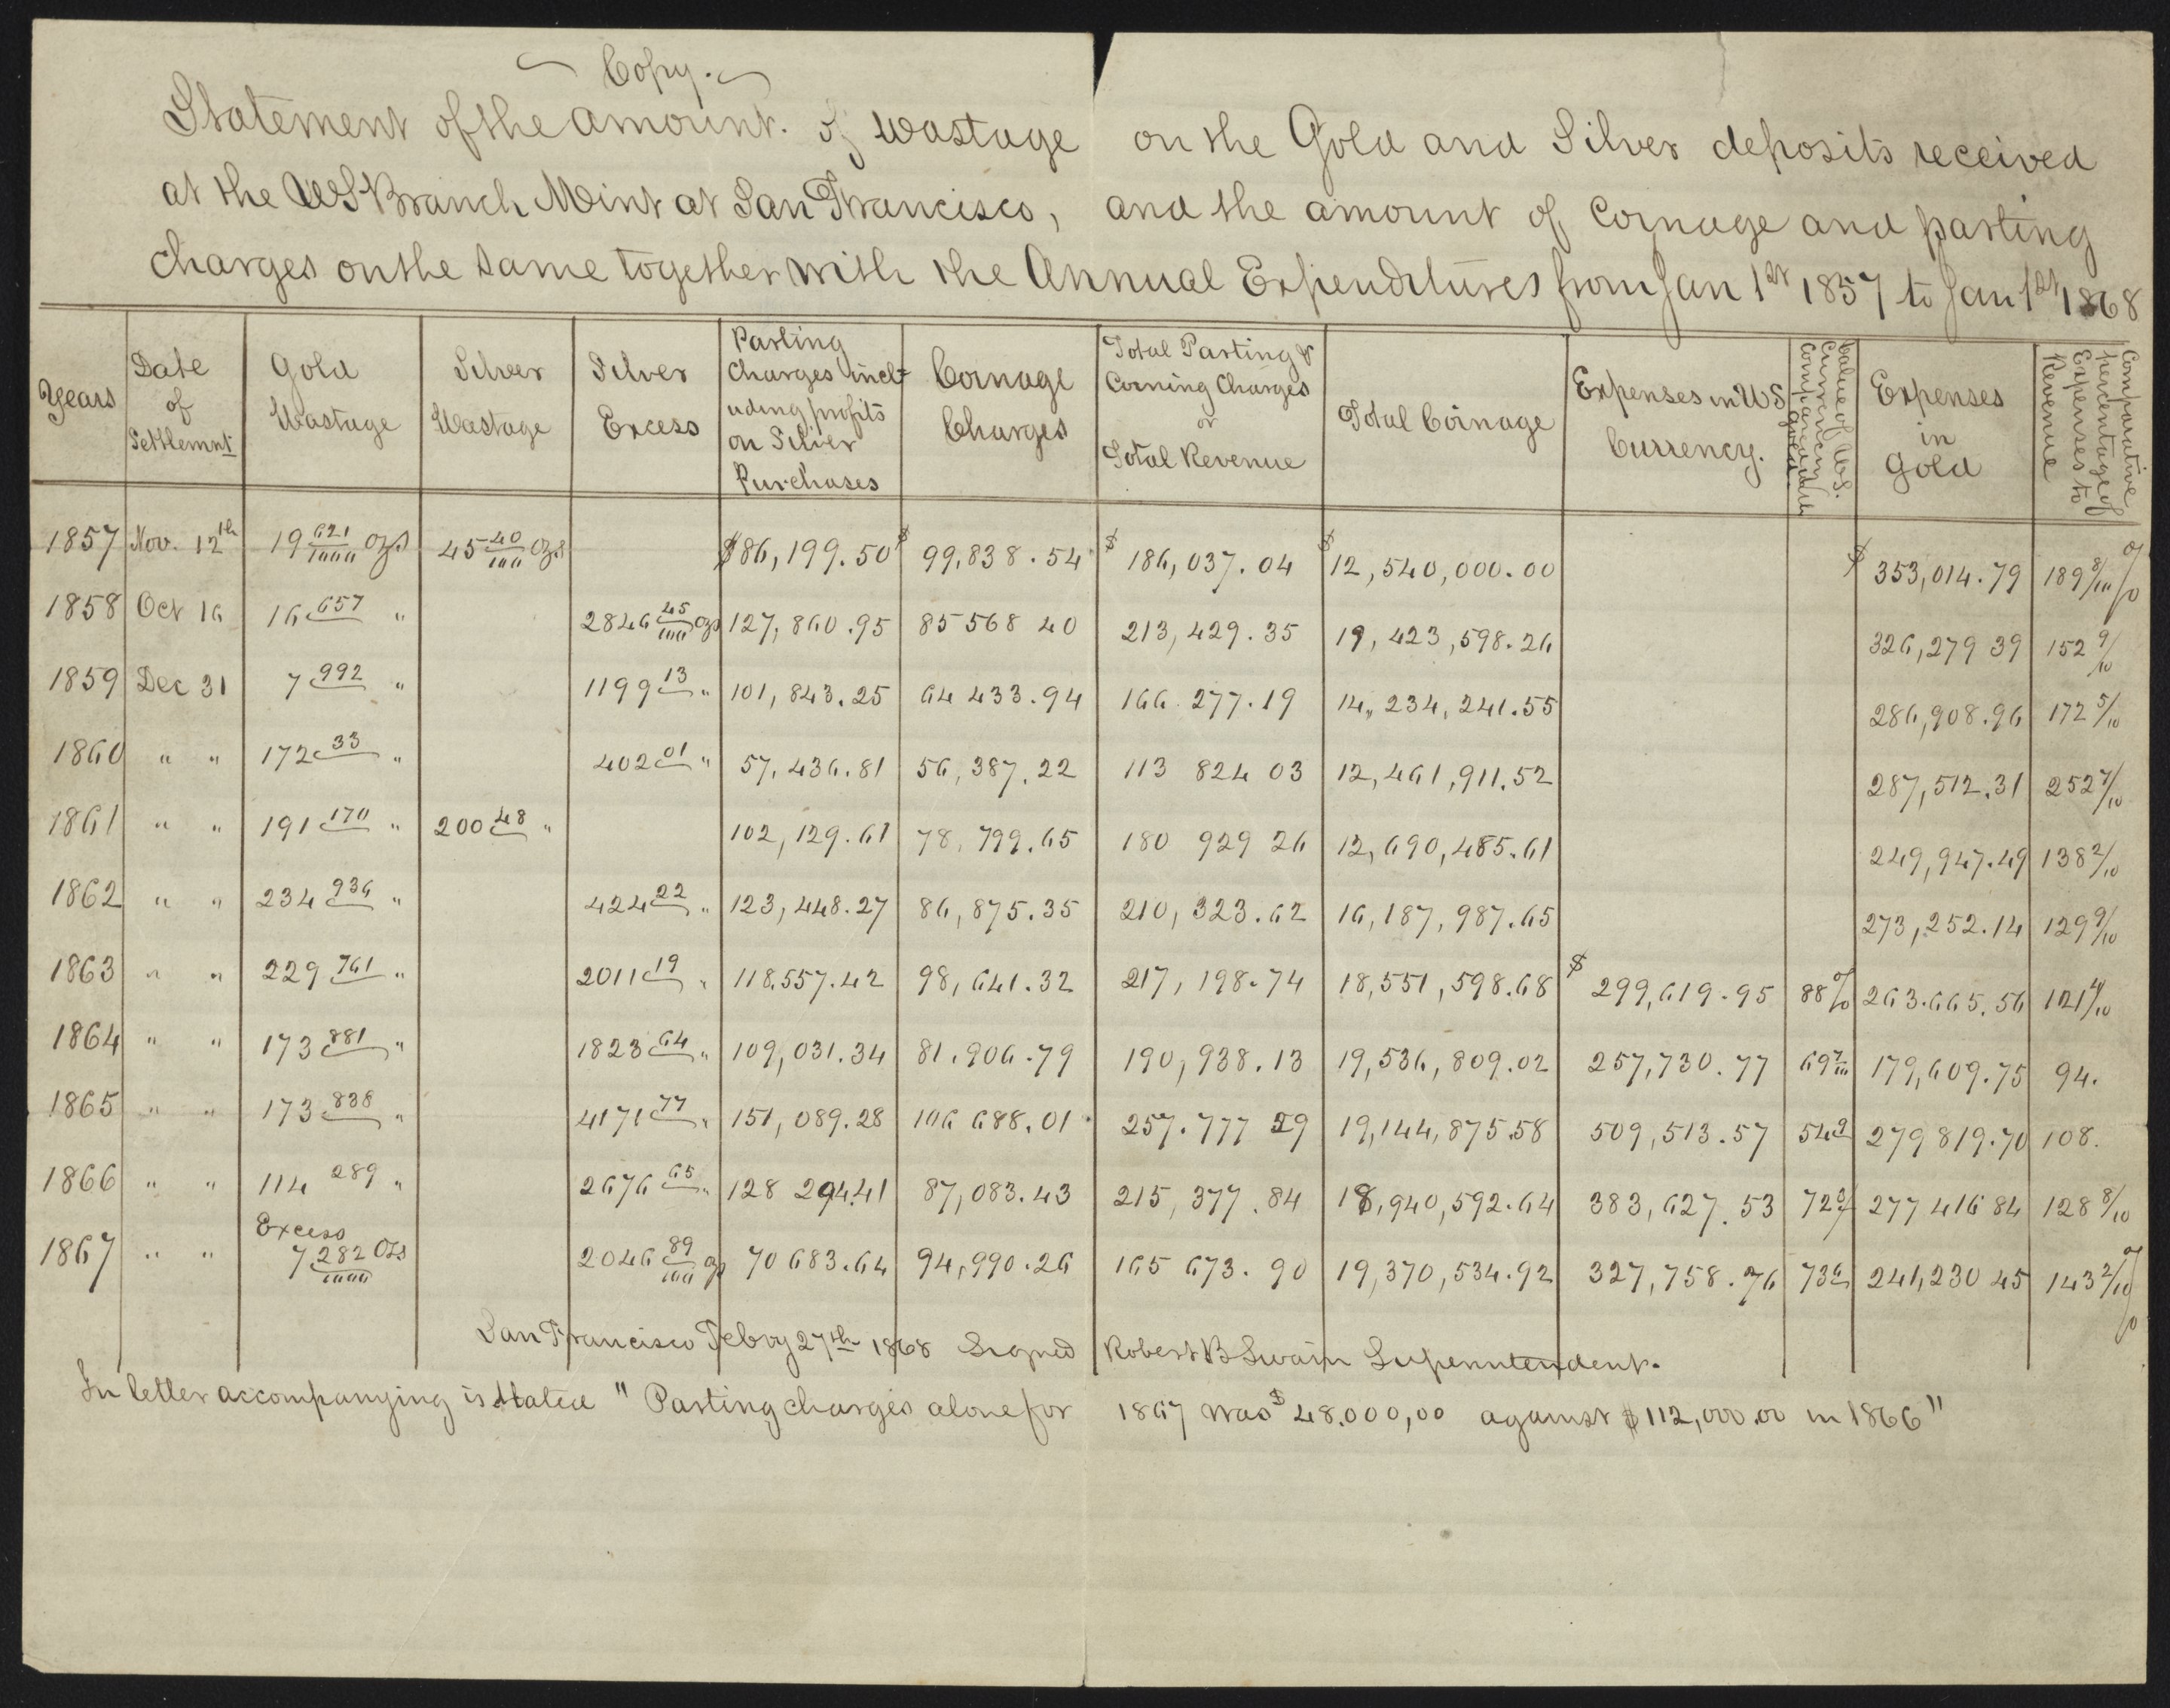 Copy.
Statement of the amount. of wastage on the Gold and Silver deposits received
at the US Branch Mint at San Francisco, and the amount of Coinage and parting
charges on the same together with the Annual Expenditures from Jan 1st 1857 to Jan 1st 1868
Years | Date of Settlemnt | Gold Wastage | Silver Wastage | Silver Excess | Parting Charges incl=uding profits on Silver Purchases | Coinage Charges | Total Parting & Coining Charges or Total Revenue | Total Coinage | Expenses in US Currency. | Value of U.S. Currency compared with gold | Expenses in Gold | Comparative percentage of Expenses to Revenue
1857 | Nov. 12th | 19 621/1000 ozs | 45 40/100 ozs | | $86,199.50 | $99,838.54 | $186,037.04 | $12,540,000.00 | | | $353,014.79 | 189 8/10 %
1858 | Oct 16 | 16 657 " | | 2846 45/100 ozs | 127,860.95 | 85 568 40 | 213,429.35 | 19,423,598.26 | | | 326,279 39 | 152 9/10
1859 | Dec 31 | 7 992 " | | 1199 13 " | 101,843.25 | 64 433.94 | 166.277.19 | 14,,234,241.55 | | | 286,908.96 | 172 5/10
1860 | " " | 172 33 " | | 402 01 " | 57,436.81 | 56,387.22 | 113 824 03 | 12,461,911.52 | | | 287,512.31 | 252 7/10
1861 | " " | 191 170 " | 200 48 " | | 102,129.61 | 78,799.65 | 180 929 26 | 12,690,485.61 | | | 249,947.49 | 138 2/10
1862 | " " | 234 936 " | | 424 22 " | 123,448.27 | 86,875.35 | 210,323.62 | 16,187,987.65 | | | 273,252.14 | 129 9/10
1863 | " " | 229 761 " | | 2011 19 " | 118.557.42 | 98,641.32 | 217,198.74 | 18,551,598.68 | $299,619.95 | 88% | 263.665.56 | 121 4/10
1864 | " " | 173 881 " | | 1823 64 " | 109,031.34 | 81.906.79 | 190,938.13 | 19,536,809.02 | 257,730.77 | 69 7/10 | 179,609.75 | 94.
1865 | " " | 173 838 " | | 4171 77 " | 151,089.28 | 106 688.01 | 257.777 29 | 19,144,875.58 | 509,513.57 | 54 9 | 279 819.70 | 108.
1866 | " " | 114 289 " | | 2676 65 " | 128 294.41 | 87,083.43 | 215,377.84 | 18,940,592.64 | 383,627.53 | 72 3 | 277 416 84 | 128 8/10
1867 | " " | Excess 7 282/1000 ozs | | 2046 89/100 ozs | 70 683.64 | 94,990.26 | 165 673.90 | 19,370,534.92 | 327,758.76 | 73 6 | 241,230 45 | 143 2/10 %
San Francisco Febry 27th 1868 Signed Robert B Swain Superintendent.
In letter accompanying is stated "Parting charges alone for 1867 was $48.000,00 against $112,000.00 in 1866"